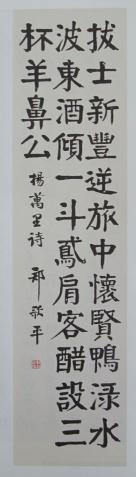 拔士新豐逆旅中懷賢鴨渌水
波東酒傾一斗鳶肩客醋設三
杯羊鼻公
楊萬里诗